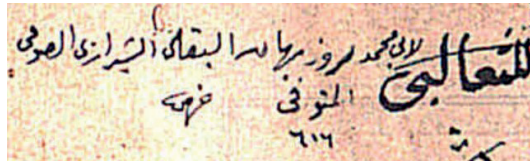 للثعالبي
لابي محمد روزبهان البقلي الشيرازي الصوفي
المتوفى
٦١٦